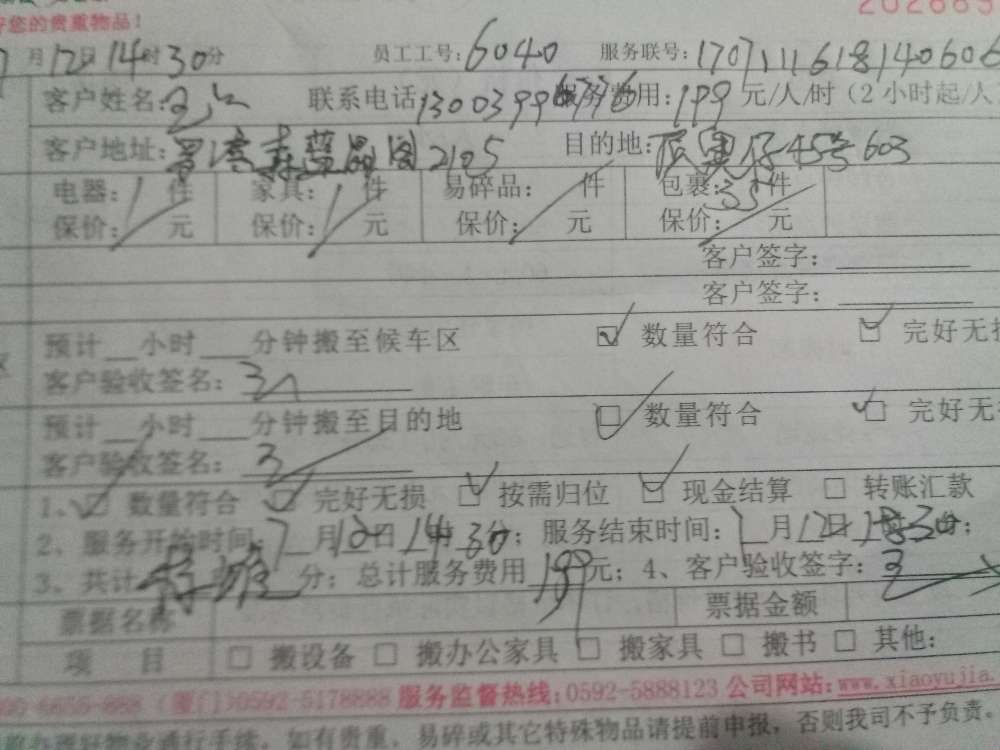 您的贵重物品！
月12日14时30分 员工工号：6040 服务联号：170711161814060
客户姓名： 联系电话 服务费用：199元/人/时（2小时起/人
客户地址： 蓝晶阁2105 目的地： 45号603
电器：1件 家具：1件 易碎品： 件 包裹：35件
保价： 元 保价： 元 保价： 元 保价： 元
客户签字：
客户签字：
预计__小时___分钟搬至候车区 数量符合 完好无
客户验收签名：
预计__小时___分钟搬至目的地 数量符合 完好无
客户验收签名：
1、 数量符合 完好无损 按需归位 现金结算 转账汇款
2、服务开始时间：7月12日14时30分；服务结束时间：7月12日18时30分；
3、共计 分；总计服务费用199元；4、客户验收签字：
票据名称 票据金额
项 目 搬设备 搬办公家具 搬家具 搬书 其他：
(厦门)0592-5178888 服务监督热线：0592-5888123 公司网站：www.xiaoyujia.
如有贵重、易碎或其它特殊物品请提前申报，否则我司不予负责。